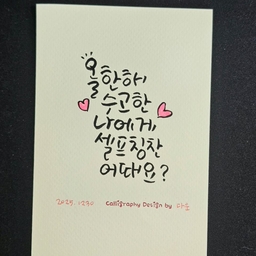 올한해
수고한
나에게
셀프칭찬
어때요?
Calligraphy Design by 다온